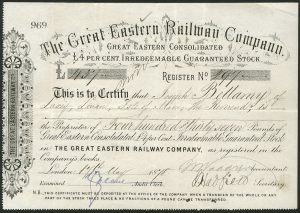 969
The Great Eastern Railway Company.
GREAT EASTERN CONSOLIDATED
£4 PER CENT. IRREDEEMABLE GUARANTEED STOCK.
£ 437 REGISTER No 197
This is to Certify that Joseph Bellamy of
the Proprietor of Four hundred & thirty seven Pounds of
Great Eastern Consolidated £4 per Cent. Irredeemable Guaranteed Stock
IN THE GREAT EASTERN RAILWAY COMPANY, as registered in the
Company's books.
London, May 1878 Accountant
Examined Secretary
N.B. THIS CERTIFICATE MUST BE DEPOSITED AT THE OFFICE OF THE COMPANY WHEN A TRANSFER OF THE WHOLE OR ANY
PART OF THE STOCK TAKES PLACE & NO FRACTIONS OF A POUND CAN BE TRANSFERRED.